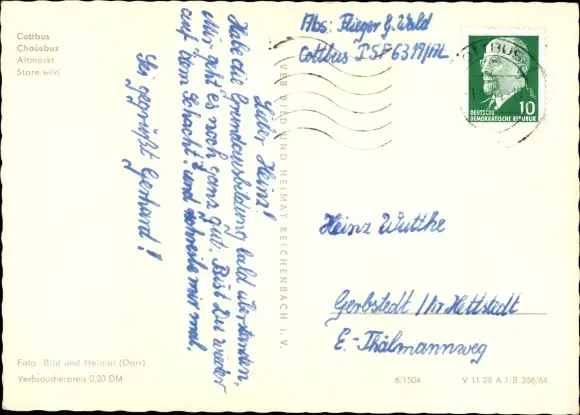 Cottbus
Chośebuz
Altmarkt
Stare wiki
Lieber Heinz!
Habe die Grundausbildung bald überstanden,
Mir geht es noch ganz gut. Bist Du wieder
auf dem Schacht? und schreibe mir mal.
Sei gegrüßt Gerhard!
VEB BILD UND HEIMAT REICHENBACH I. V.
Abs: Flieger G. Wald
Cottbus PSF 6319/
COTTBUS
10
DEUTSCHE
DEMOKRATISCHE REPUBLIK
Heinz Wuttke
Gerbstedt /Kr Hettstedt
E.-Thälmannweg
Foto: Bild und Heimat (Darr)
Verbraucherpreis 0,20 DM
6/1504
V 11 28 A 1/B 306/64